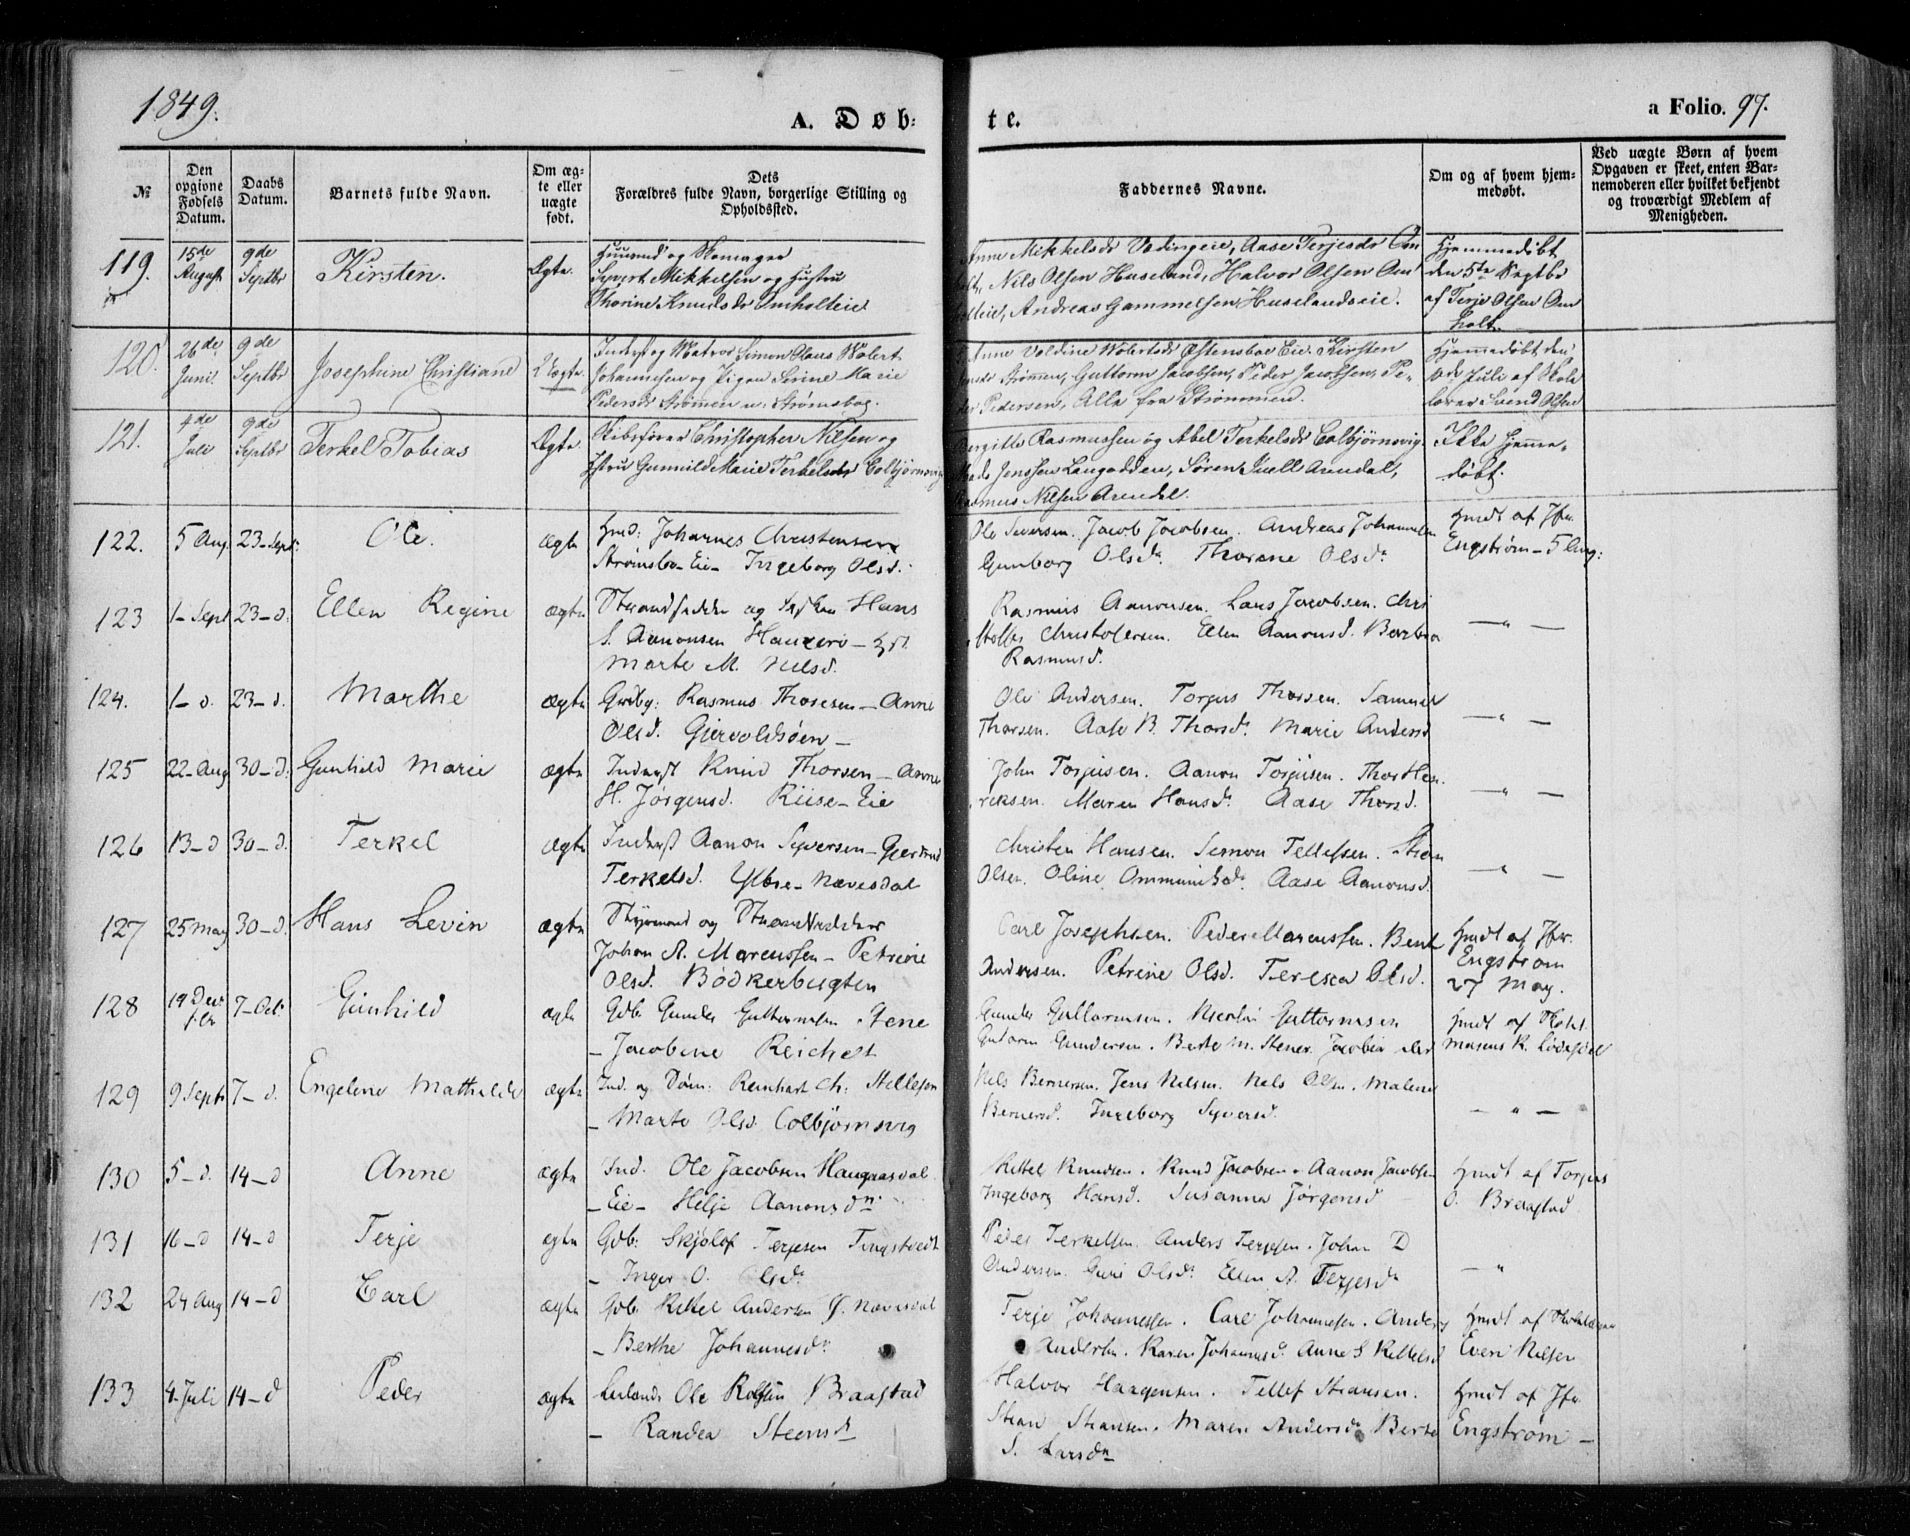 1849.
A. Døb-
te.
a Folio. 97.
№
Den opgivne Fødsels Datum.
Daabs Datum.
Barnets fulde Navn.
Om ægte eller uægte født.
Dets Forældres fulde Navn, borgerlige Stilling og Opholdssted.
Faddernes Navne.
Om og af hvem hjemmedøbt.
Ved uægte Børn af hvem Opgaven er skeet, enten Barnemoderen eller hvilket bekjendt og troværdigt Medlem af Menigheden.
119. 15de August 9de Septbr Kirsten. Ægte. Huusmd og Skomager
Syvert Mikkelsen og Hustru
Thorine Knudsdr Omholteie
Anne Mikkelsdr Aase Terjesdr Om
holt, Nils Olsen Huseland, Halvor Olsen Om
holteie, Andreas Gammelsen Huselandseie.
Hjemmedøbt
den 5te Septbr
af Terje Olsen Om
holt.
120. 26de Juni 9de Septbr Josephine Christiane Uægte. Inderst og Matros Simon Claus Wolert
Johannesen og Pigen Serine Marie
Pedersdr Strømmen v. Strømsboe.
Anne Voldine Wolertsdr Østensboe Eie. Kirsten
Strømmen, Guttorm Jacobsen, Peder Jacobsen, Pe-
der Pedersen, Alle fra Strømmen.
Hjemmedøbt den
Juli af Skole
lærer Svend Olsen
121. 4de Juli 9de Septbr Terkel Tobias Ægte. Skibsfører Christopher Nilsen og
Hstru Gunnild Marie Terkelsdr Colbjørnsvig
Bergitte Rasmussen og Abel Terkelsdr Colbjørnsvig
Mads Jenssen Langodden, Søren Juell Arendal,
Rasmus Nilsen Arendal.
Ikke Hjemme-
døbt.
122. 5 Aug. 23-Sept: Ole. ægte Hmd: Johannes Christensen
Strømsbo-Eie- Ingeborg Olsd.
Ole Siversen. Jacob Jacobsen. Andreas Johannesen
Gunborg Olsdr Thorene Olsdr
Hmdt af Jfr.
Engstrøm - 5 Aug:
123 1-Sept 23-d. Ellen Regine ægte Strandsidder og Hans
S. Aanonsen - Hst.
Marte M. Nilsd.
Rasmus Aanonsen. Lars Jacobsen. Chri
stoffer Christofersen. Ellen Aanonsd. Barbra
Rasmusd.
— " —
124. 1-d. 23-d. Marthe ægte Grdbg: Rasmus Thorsen - Anne
Olsd. Gjervoldsøen -
Ole Andersen. Torjus Thorsen. Samuel
Thorsen. Aase B. Thorsdr Marie Andersd
— " —
125 22-Aug 30-d. Gunhild Marie ægte Inderst Knud Thorsen - Anne
H. Jørgensd. Riise-Eie
John Torjusen. Aanon Torjusen. Thor Hen
riksen. Maren Hansdr Aase Thorsd.
— " —
126 13-d 30-d. Terkel ægte Inderst Aanon Syversen - Gjertrud
Terkelsd. Næresdal
Christen Hansen. Simon Tellefsen. Stian
Olsen. Oline Ommundsdr Aase Aanonsd.
— " —
127 25 May 30-d. Hans Levin ægte Styrmand og Strandsidder
Johan A. Marcussen - Petrine
Olsd. Bødkerbugten
Carl Josephsen. Peder Marcussen. Bent
Andersen. Petrine Olsd. Teresea Olsd.
Hmdt af Jfr.
Engstrøm
27 May.
128 19 7-Oct. Gunhild ægte Gdb: Gunder Guttormsen
- Jacobine Reichelt
Gunder Guttormsen. Nicolai Guttormsen
Gutorm Gundersen. Berte M.
Hmdt af
129 9 Septr 7-d. Engeline Mathilde ægte Ind. og Reinhart Ch:
- Marte Olsd Colbjørnsvig
Nels Bernersen. Jens Nelsen. Nels Olsen. Malene
Bernersd. Ingeborg Syversd.
— " —
130 5-d. 14-d Anne ægte Ind. Ole Jacobsen Haugaasdal
-Eie- Helje Aanonsdr
Kittel Knudsen. Knud Jacobsen. Aanon Jacobsen
Ingeborg Hansd. Susanna Jørgensd
Hmdt af Torjus
O. Braastad
131 16-d 14-d Terje ægte Gdb: Skjølof Terjesen Tingstvedt
- Inger O. Olsdr
Peder Terkelsen. Anders Terjesen. Johan D
Andersen. Guri Olsdr Ellen A. Terjesdr
— "
132 24 Aug 14-d Carl ægte Gdb: Kittel Andersen Næresdal
- Berthe Johannesdr
Terje Johannessen. Carl Johannesen. Anders
Andersen. Karen Johannesd. Anne S Kittelsd
Hmdt af
Even Nilsen
133 4-Juli 14-d Peder ægte Ole Rolfsen Braastad
- Randea Steensdr
Halvor Haagensen. Tellef Steansen.
Stean Steansen. Maren Andersdr Berte
S. Larsdr
Hmdt af Jfr.
Engstrøm -